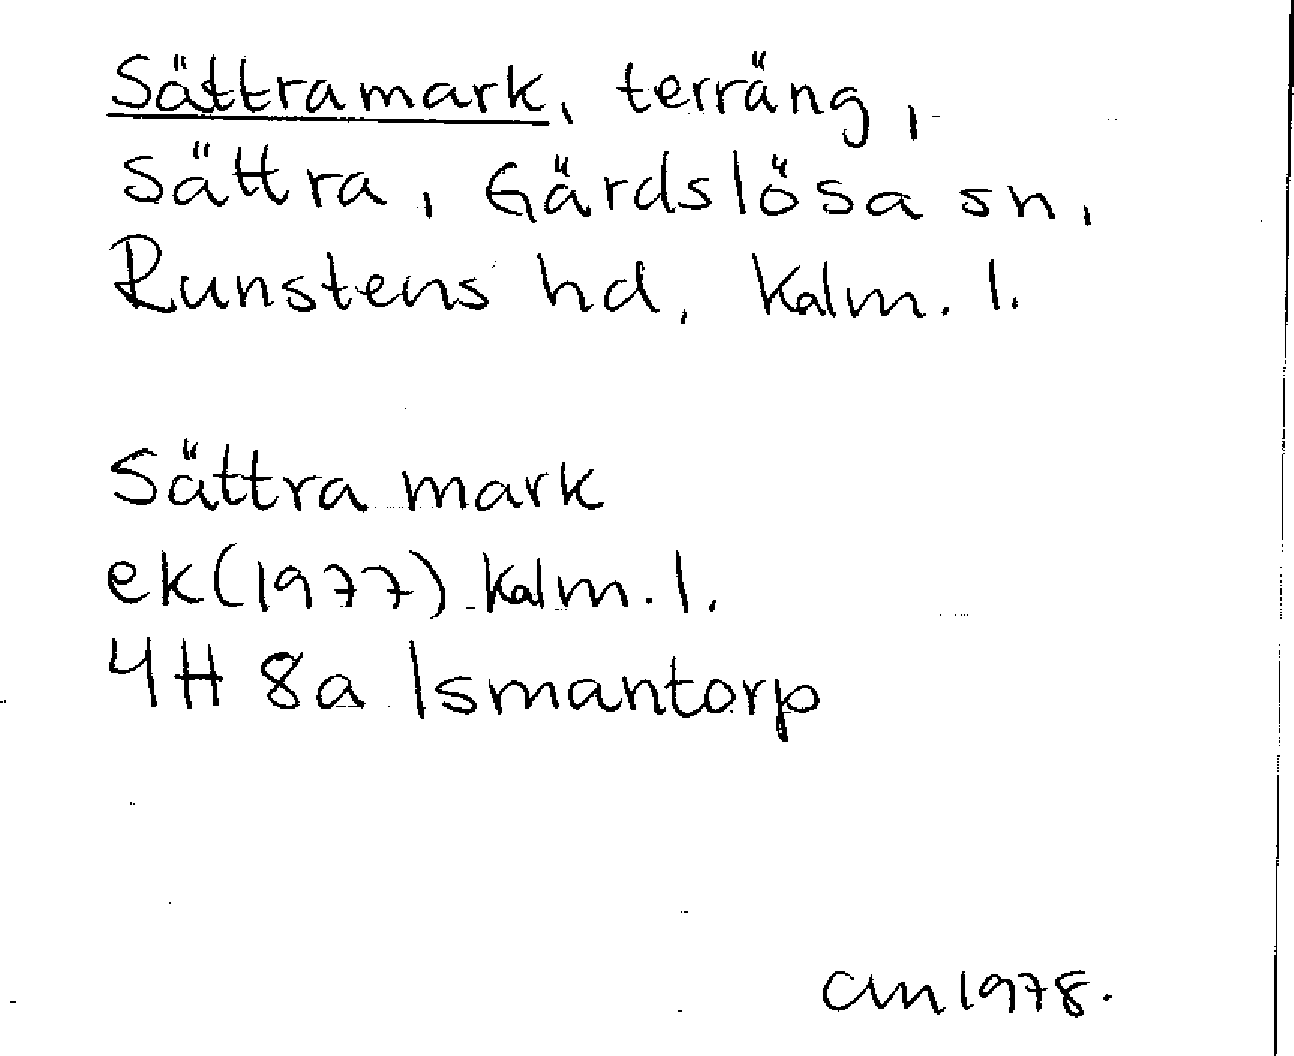 Sättramark, terräng,
Sättra, Gärdslösa sn,
Runstens hd, Kalm. l.
Sättra mark
ek (1977) Kalm. l.
4H 8a Ismantorp
1978.